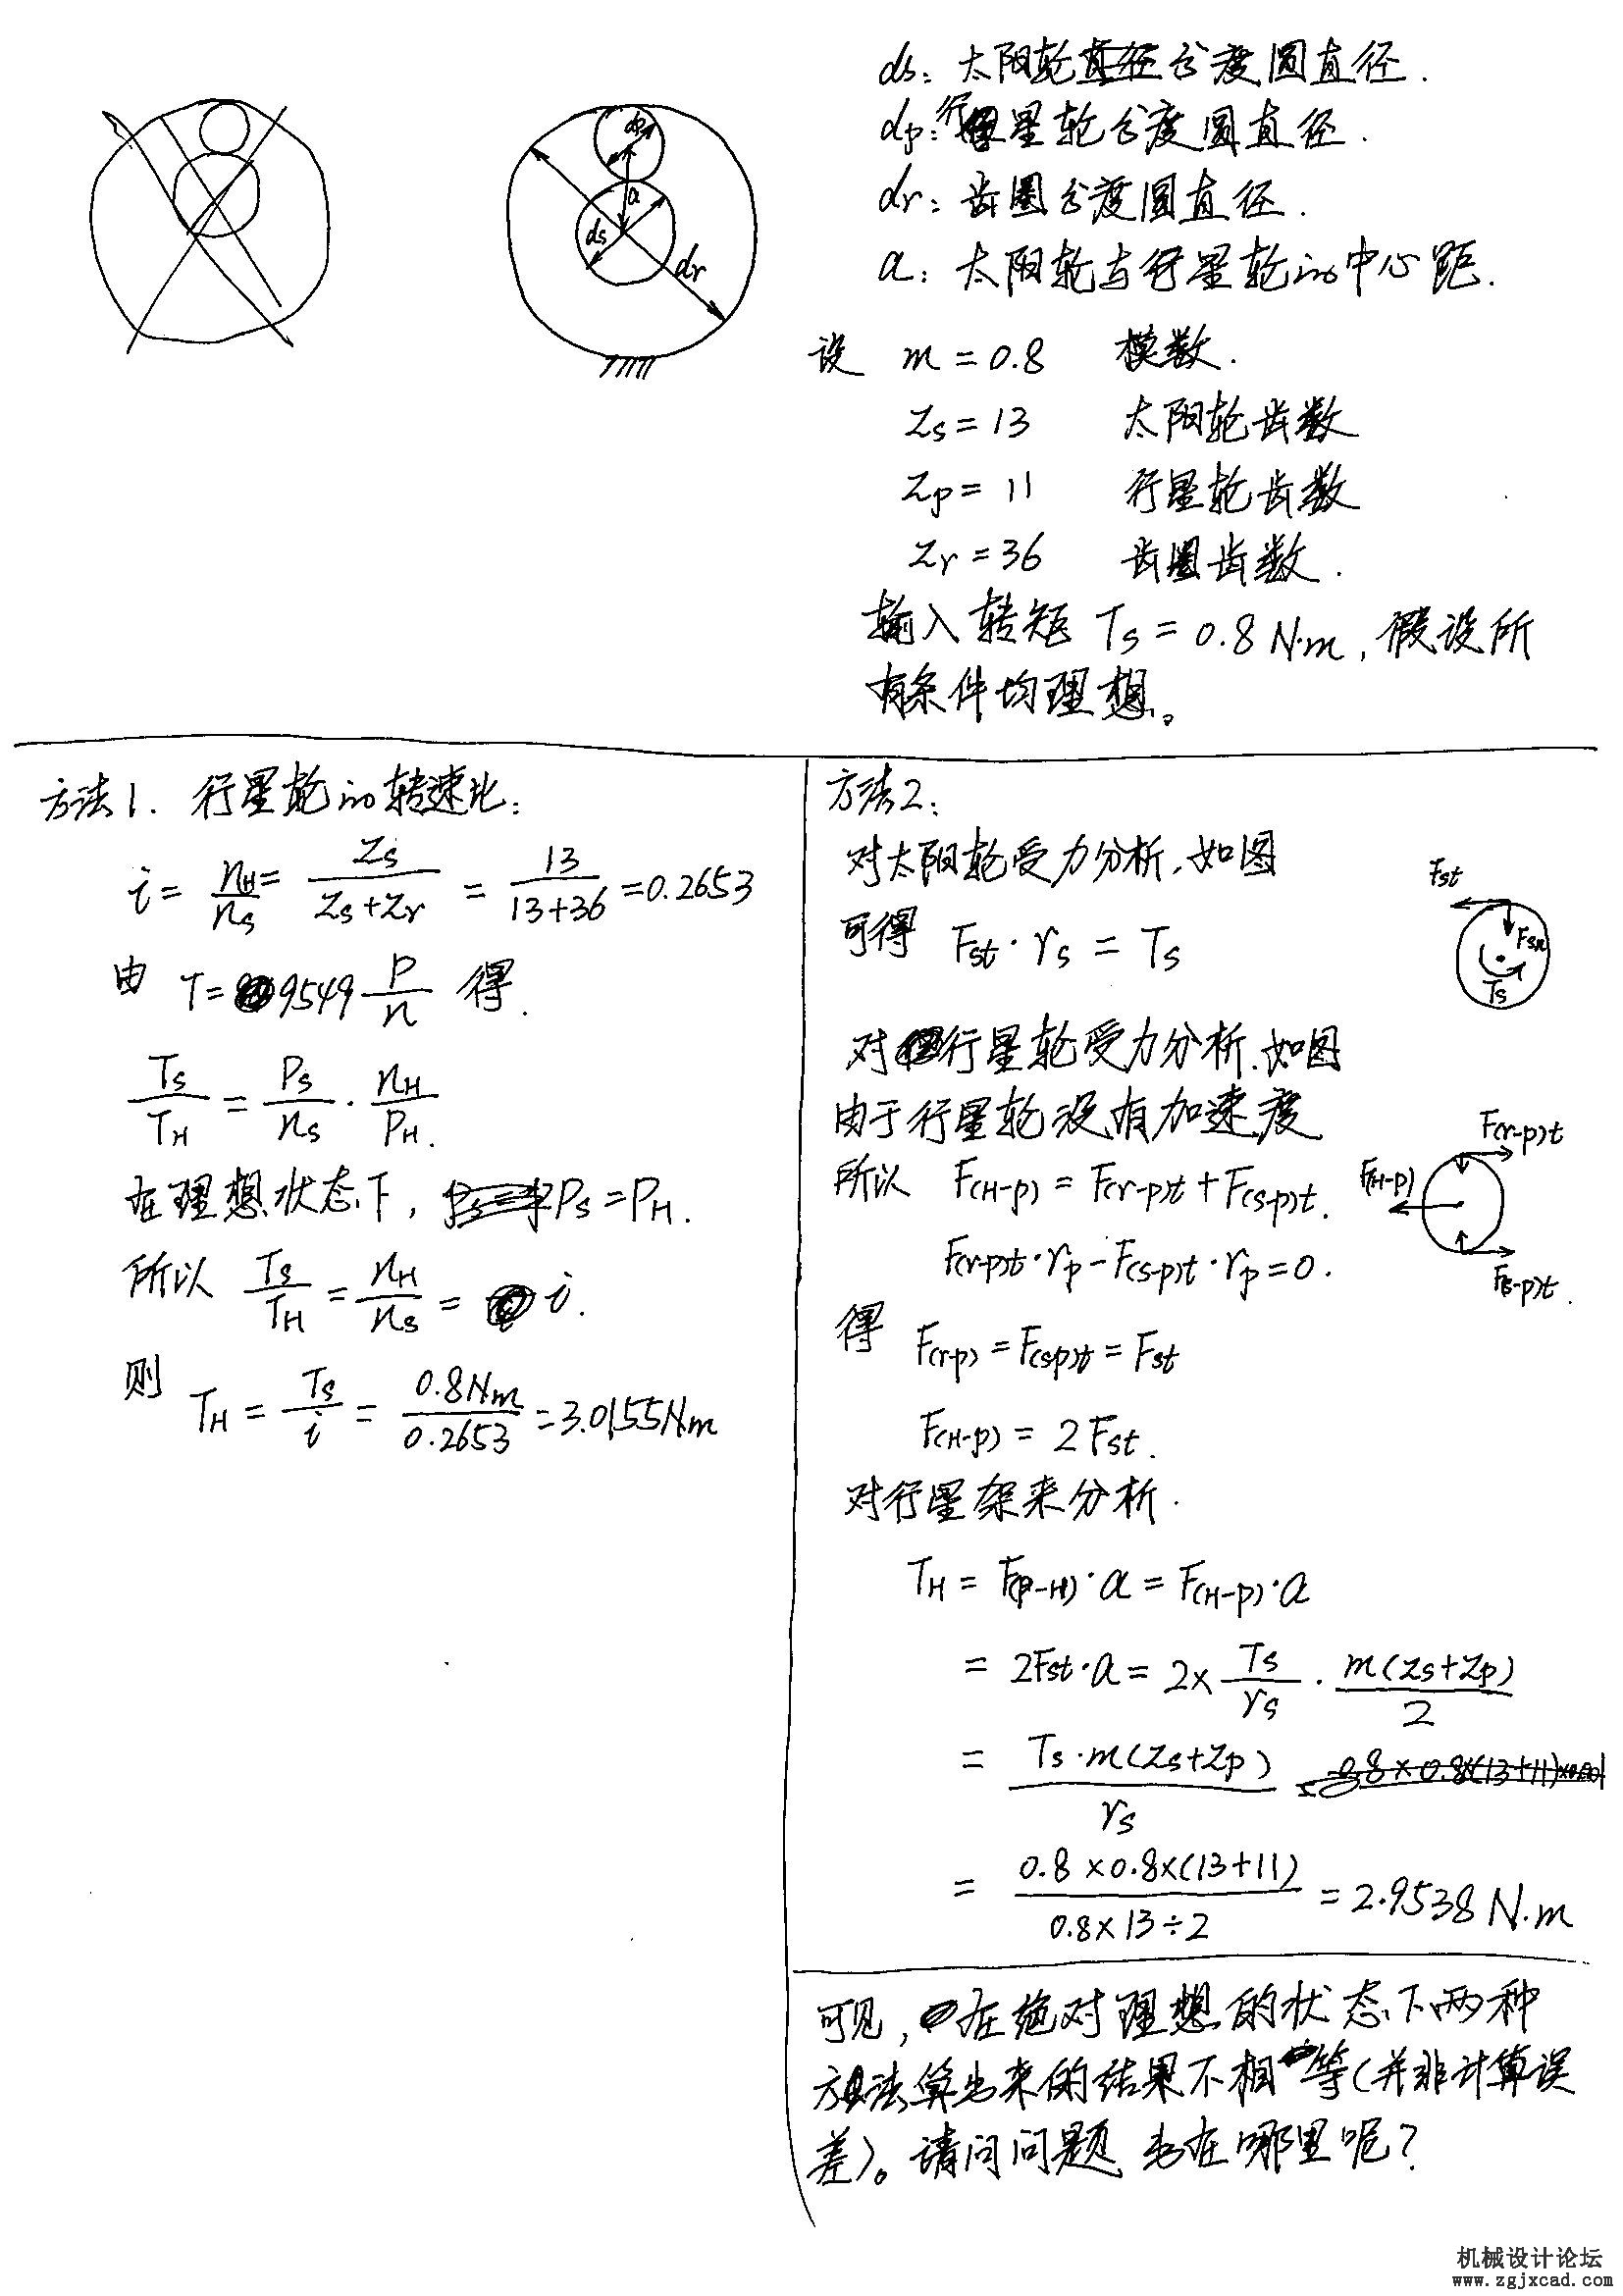 ds：太阳轮分度圆直径.
dp：行星轮分度圆直径.
dr：齿圈分度圆直径.
a：太阳轮与行星轮的中心距.
dp
a
ds
dr
设 m = 0.8 模数.
Zs = 13 太阳轮齿数
Zp = 11 行星轮齿数
Zr = 36 齿圈齿数.
输入转矩 Ts = 0.8 N·m, 假设所
有条件均理想。
方法1. 行星轮的转速比：
i = nH/ns = Zs/(Zs+Zr) = 13/(13+36) = 0.2653
由 T = 9549 P/n 得.
Ts/TH = Ps/ns · nH/PH.
在理想状态下, Ps = PH.
所以 Ts/TH = nH/ns = i.
则 TH = Ts/i = 0.8Nm/0.2653 = 3.0155N.m
方法2：
对太阳轮受力分析.如图
可得 Fst · rs = Ts
Fst
Fsn
Ts
对行星轮受力分析.如图
由于行星轮没有加速度
所以 F(H-p) = F(r-p)t + F(s-p)t.
F(r-p)t · rp - F(s-p)t · rp = 0.
F(r-p)t
F(H-p)
F(s-p)t.
得 F(r-p) = F(s-p)t = Fst
F(H-p) = 2Fst.
对行星架来分析.
TH = F(p-H) · a = F(H-p) · a
= 2Fst · a = 2× Ts/rs · m(Zs+Zp)/2
= Ts·m(Zs+Zp)/rs
= 0.8×0.8×(13+11)/(0.8×13÷2) = 2.9538 N.m
可见, 在绝对理想的状态下两种
方法算出来的结果不相等(并非计算误
差)。请问问题出在哪里呢？
机械设计论坛
www.zgjxcad.com